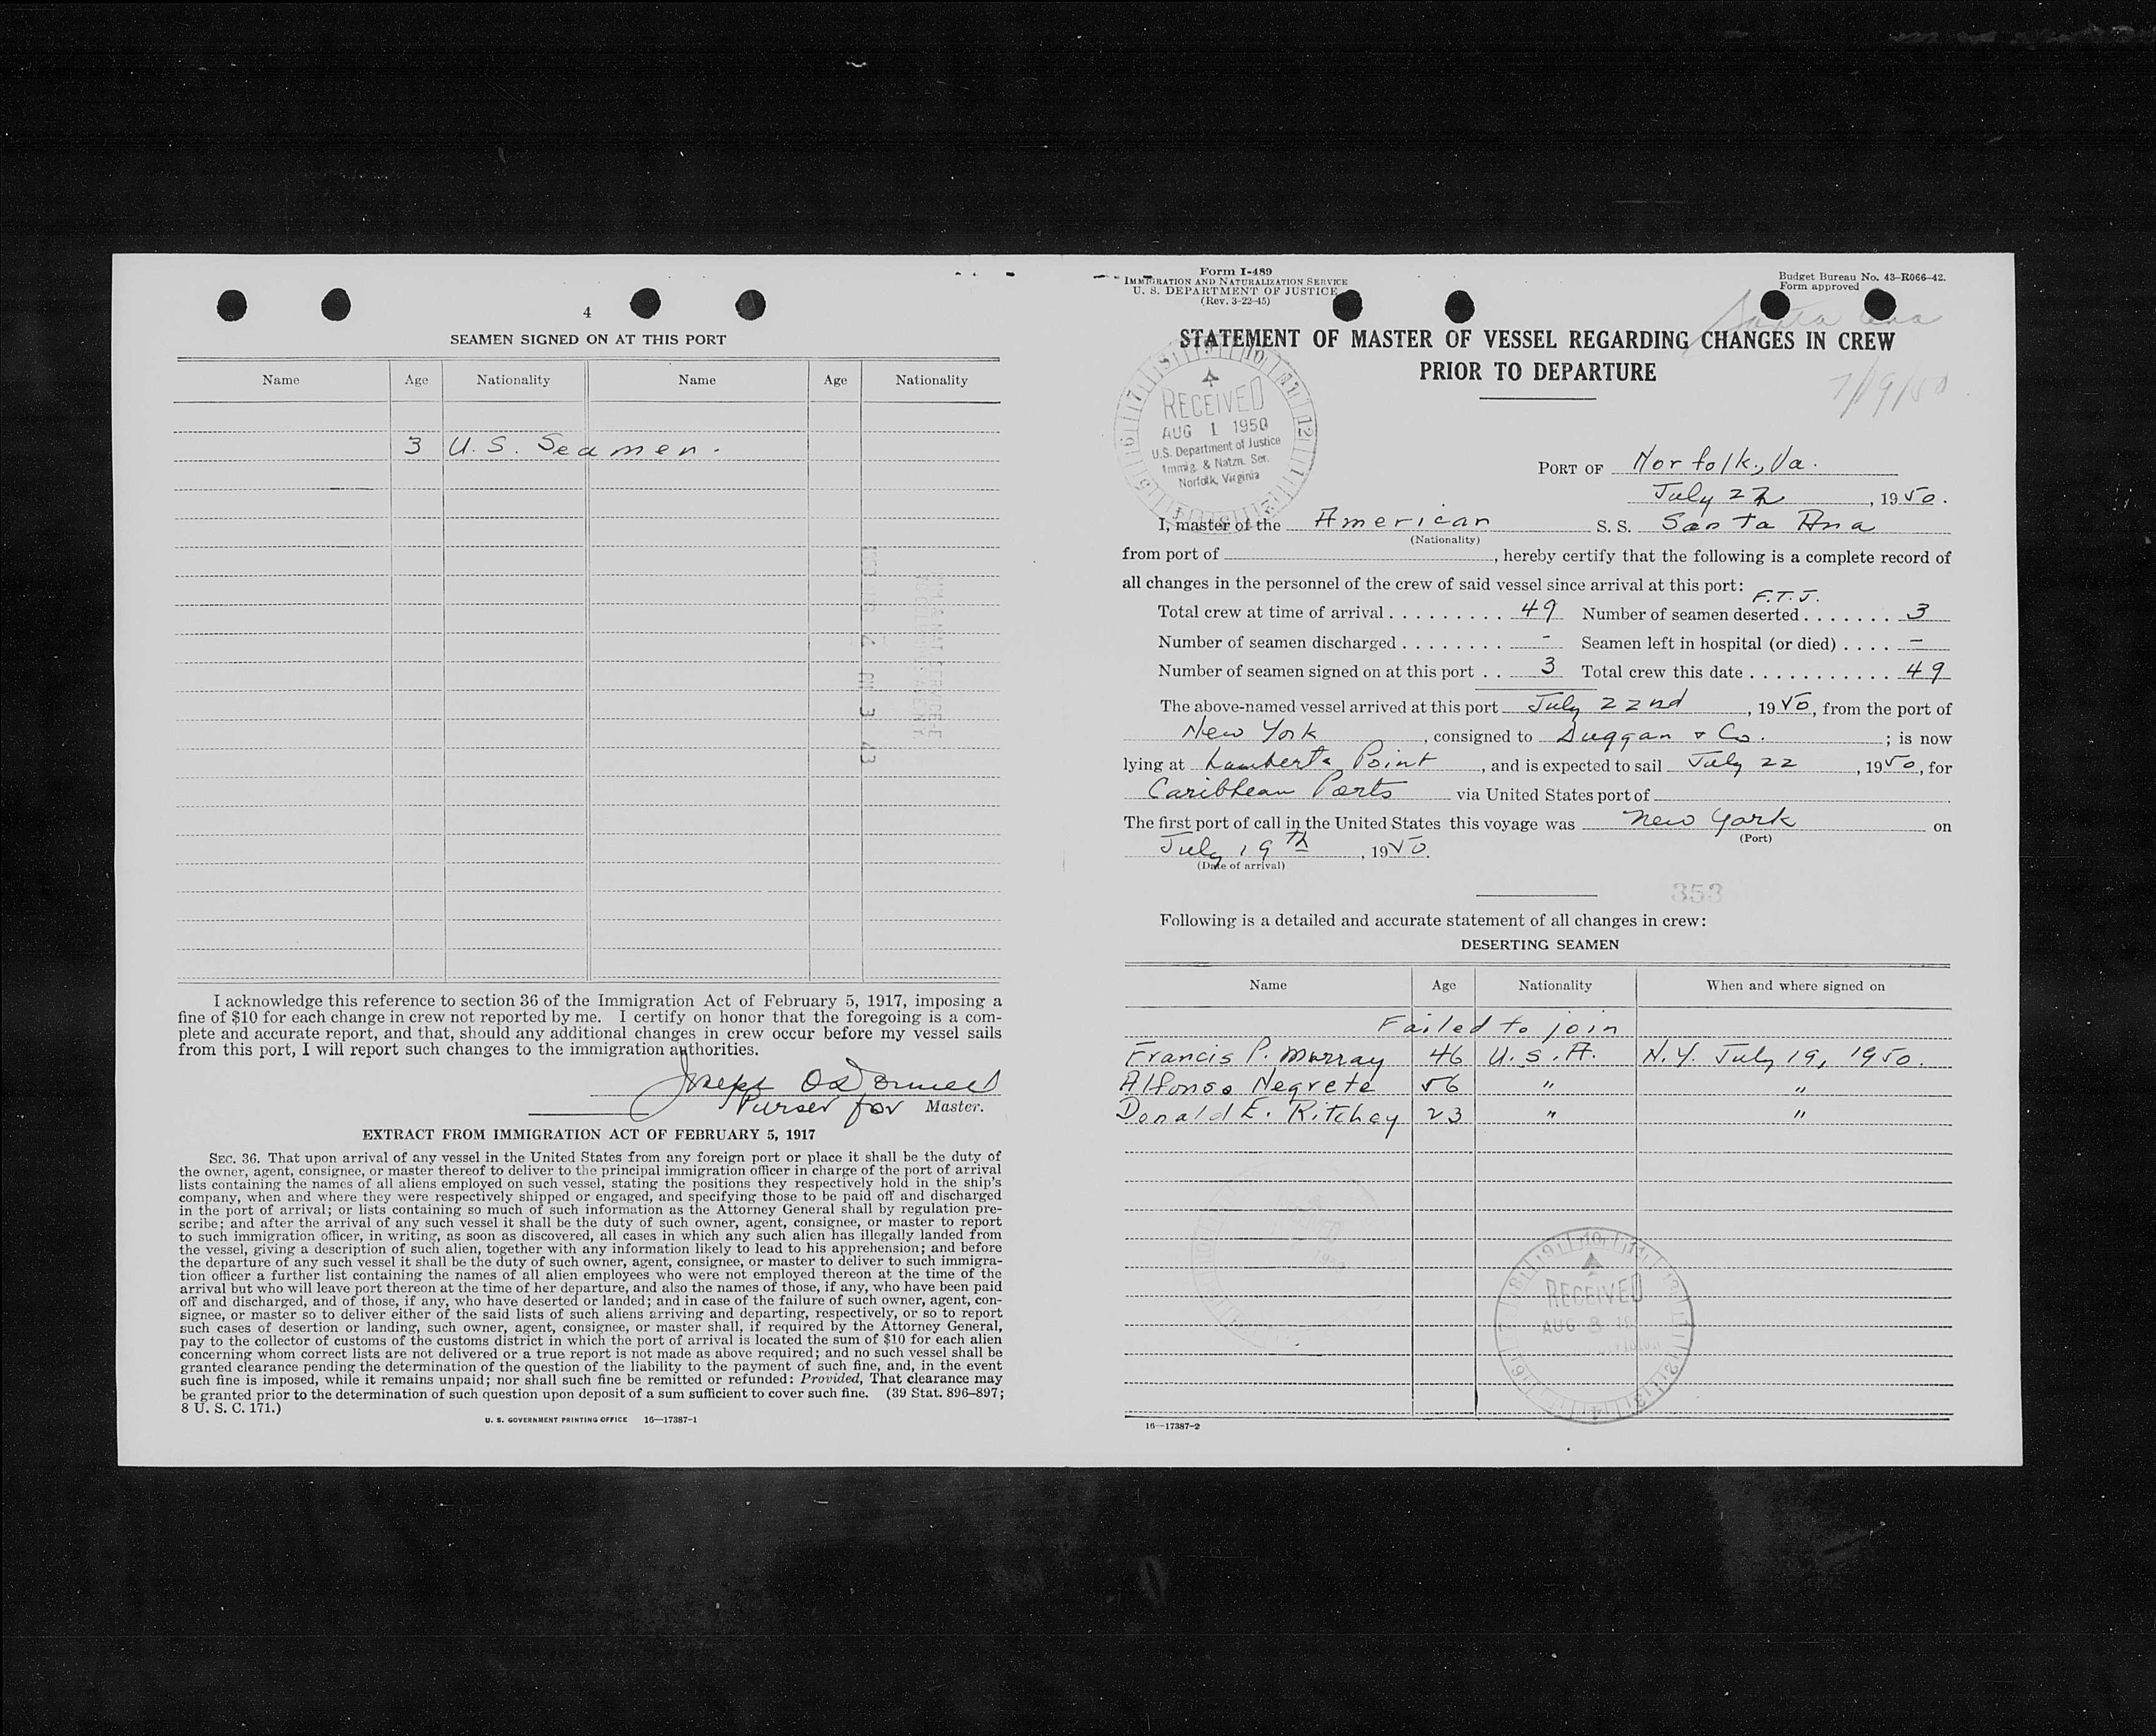 4
SEAMEN SIGNED ON AT THIS PORT
Name Age Nationality Name Age Nationality
3 U.S. Seamen.
I acknowledge this reference to section 36 of the Immigration Act of February 5, 1917, imposing a
fine of $10 for each change in crew not reported by me. I certify on honor that the foregoing is a com-
plete and accurate report, and that, should any additional changes in crew occur before my vessel sails
from this port, I will report such changes to the immigration authorities.
Joseph O'Donnell
Purser for Master.
EXTRACT FROM IMMIGRATION ACT OF FEBRUARY 5, 1917
SEC. 36. That upon arrival of any vessel in the United States from any foreign port or place it shall be the duty of
the owner, agent, consignee, or master thereof to deliver to the principal immigration officer in charge of the port of arrival
lists containing the names of all aliens employed on such vessel, stating the positions they respectively hold in the ship's
company, when and where they were respectively shipped or engaged, and specifying those to be paid off and discharged
in the port of arrival; or lists containing so much of such information as the Attorney General shall by regulation pre-
scribe; and after the arrival of any such vessel it shall be the duty of such owner, agent, consignee, or master to report
to such immigration officer, in writing, as soon as discovered, all cases in which any such alien has illegally landed from
the vessel, giving a description of such alien, together with any information likely to lead to his apprehension; and before
the departure of any such vessel it shall be the duty of such owner, agent, consignee, or master to deliver to such immigra-
tion officer a further list containing the names of all alien employees who were not employed thereon at the time of the
arrival but who will leave port thereon at the time of her departure, and also the names of those, if any, who have been paid
off and discharged, and of those, if any, who have deserted or landed; and in case of the failure of such owner, agent, con-
signee, or master so to deliver either of the said lists of such aliens arriving and departing, respectively, or so to report
such cases of desertion or landing, such owner, agent, consignee, or master shall, if required by the Attorney General,
pay to the collector of customs of the customs district in which the port of arrival is located the sum of $10 for each alien
concerning whom correct lists are not delivered or a true report is not made as above required; and no such vessel shall be
granted clearance pending the determination of the question of the liability to the payment of such fine, and, in the event
such fine is imposed, while it remains unpaid; nor shall such fine be remitted or refunded: Provided, That clearance may
be granted prior to the determination of such question upon deposit of a sum sufficient to cover such fine. (39 Stat. 896–897;
8 U. S. C. 171.)
U. S. GOVERNMENT PRINTING OFFICE 16—17387-1
Form I-489
IMMIGRATION AND NATURALIZATION SERVICE
U. S. DEPARTMENT OF JUSTICE
(Rev. 3-22-45)
Budget Bureau No. 43-R066-42.
Form approved
Santa Ana
STATEMENT OF MASTER OF VESSEL REGARDING CHANGES IN CREW
PRIOR TO DEPARTURE
7/19/50
RECEIVED
AUG 1 1950
U.S. Department of Justice
Immig. & Natzn. Ser.
Norfolk, Virginia
PORT OF Norfolk, Va.
July 22, 1950.
I, master of the American S. S. Santa Ana
(Nationality)
from port of , hereby certify that the following is a complete record of
all changes in the personnel of the crew of said vessel since arrival at this port:
F.T.J.
Total crew at time of arrival . . . . . . . . . . 49 Number of seamen deserted . . . . . . . 3
Number of seamen discharged . . . . . . . . - Seamen left in hospital (or died) . . . . -
Number of seamen signed on at this port . . 3 Total crew this date . . . . . . . . . . . 49
The above-named vessel arrived at this port July 22nd, 1950, from the port of
New York, consigned to Duggan & Co. ; is now
lying at Lamberts Point, and is expected to sail July 22, 1950, for
Caribbean Ports via United States port of
The first port of call in the United States this voyage was New York on
(Port)
July 19th, 1950.
(Date of arrival)
353
Following is a detailed and accurate statement of all changes in crew:
DESERTING SEAMEN
Name Age Nationality When and where signed on
Failed to join
Francis P. Murray 46 U.S.A. N.Y. July 19, 1950.
Alfonso Negrete 56 " "
Donald E. Ritchey 23 " "
RECEIVED
AUG 8
16—17387-2